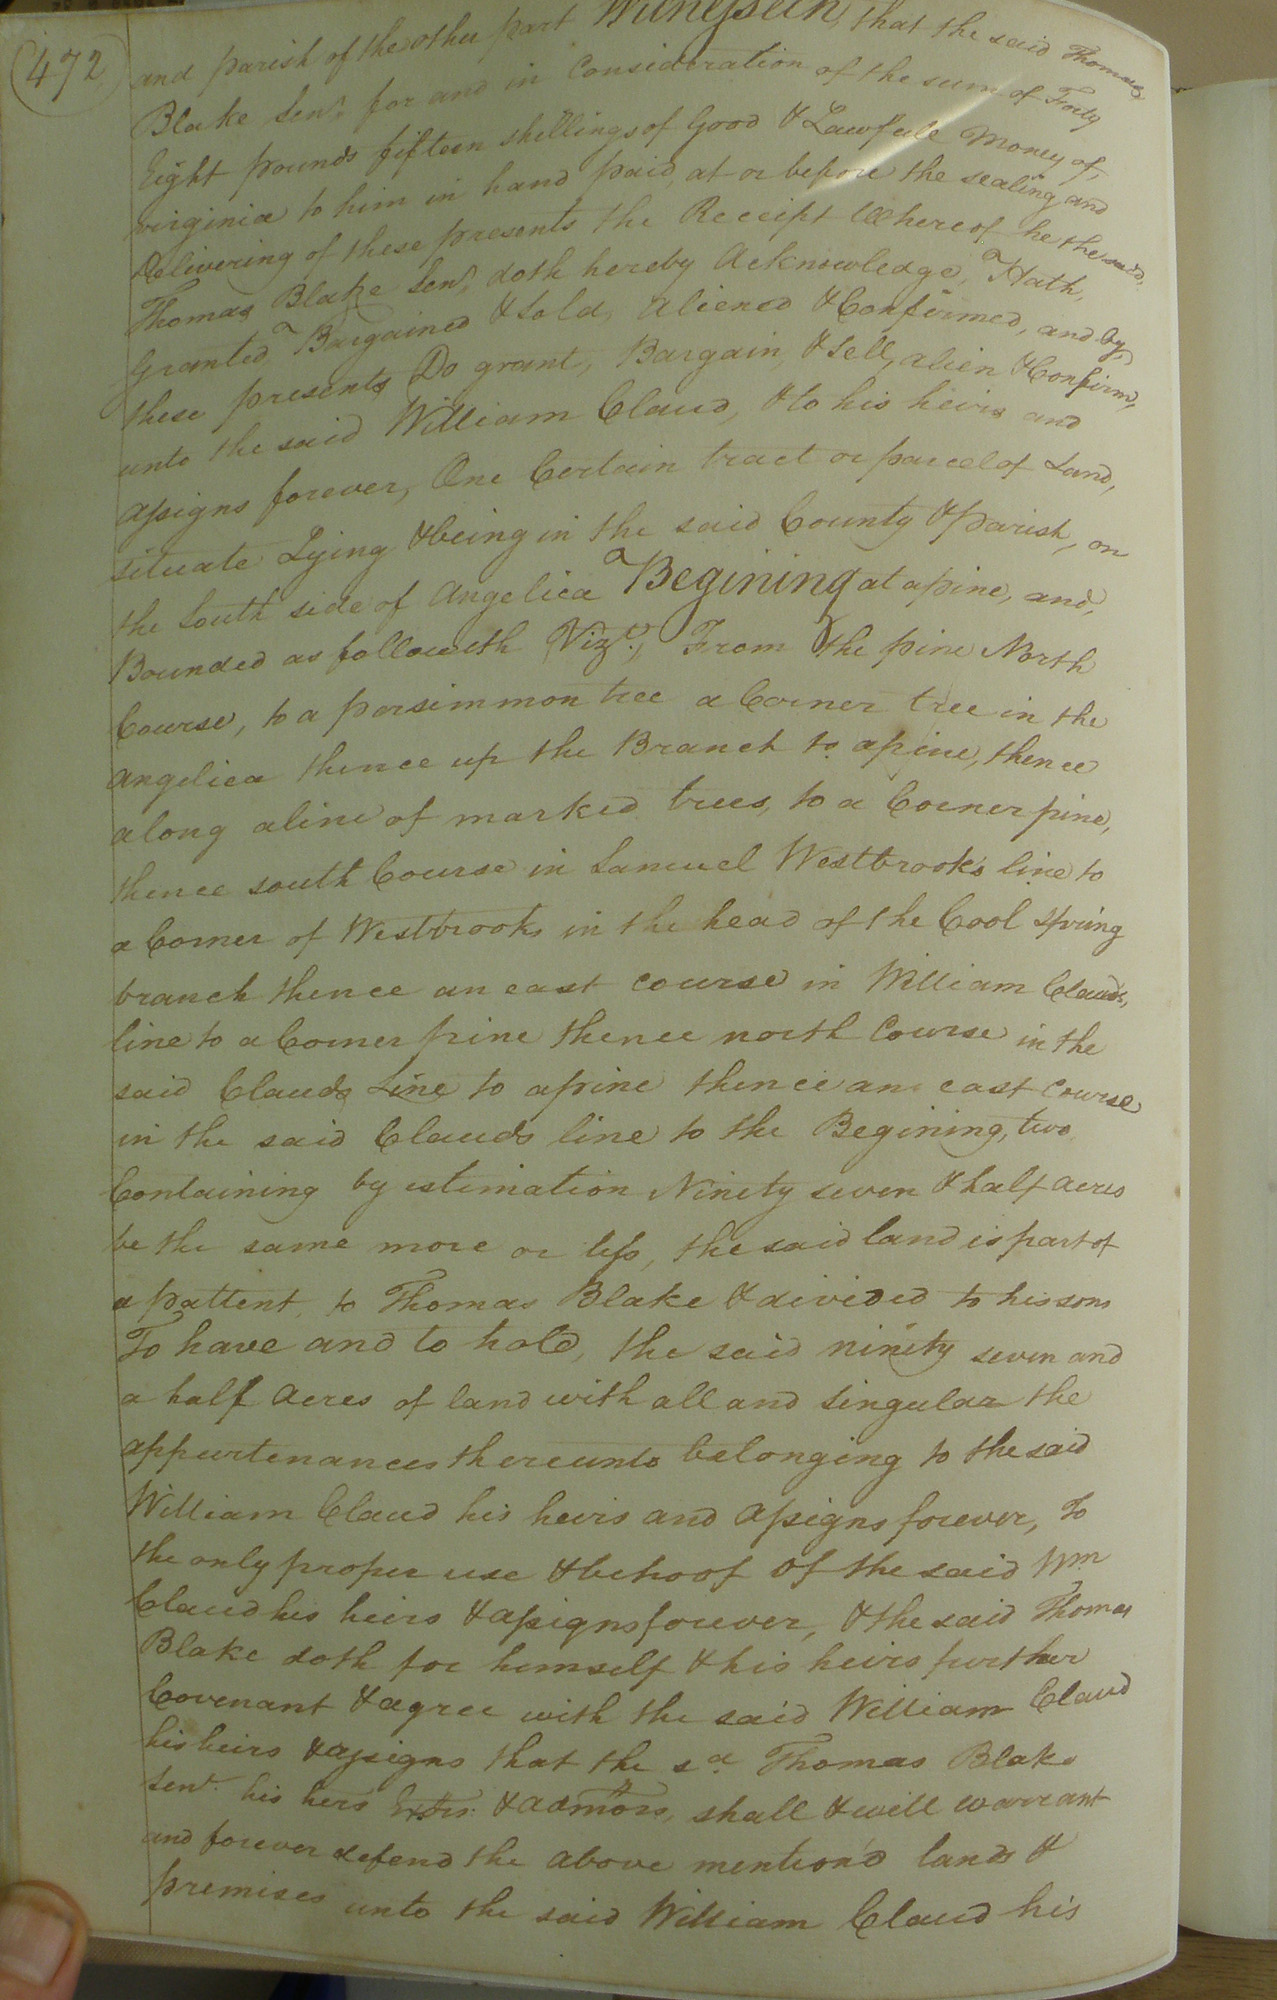 472
and parish of the other part Witnesseth, that the said Thomas
Blake Senr. for and in Consideration of the sum of Forty
Eight pounds fifteen shillings of Good & Lawfull Money of,
virginia to him in hand paid, at or before the sealing and
Delivering of these presents the Receipt Whereof he the said,
Thomas Blake Senr. doth hereby Acknowledge, Hath,
Granted, Bargained & Sold, Aliened & Confirmed, and by,
these presents Do grant, Bargain, & Sell, alien & Confirm,
unto the said William Claud, & to his heirs and
assigns forever, One Certain tract or parcel of Land,
situate Lying & being in the said County & parish, on
the South side of Angelica Begining at a pine, and,
Bounded as followeth Vizt., From the pine North
Course, to a persimmon tree a Corner tree in the
Angelica thence up the Branch to a pine, thence
along a line of marked trees, to a Corner pine,
thence south Course in Samuel Westbrooks line to
a Corner of Westbrooks in the head of the Cool Spring
branch thence an east course in William Clauds,
line to a Corner pine thence north Course in the
said Clauds Line to a pine thence an east Course
in the said Clauds line to the Begining, two
Containing by estimation Ninety seven & half acres
be the same more or less, the said land is part of
a pattent to Thomas Blake & divided to his sons
To have and to hold, the said ninety seven and
a half Acres of land with all and Singular the
appurtenances thereunto belonging to the said
William Claud his heirs and assigns forever, To
the only proper use & behoof of the said Wm
Claud his heirs & assigns forever, & the said Thomas
Blake doth for himself & his heirs further
Covenant & agree with the said William Claud
his heirs & assigns that the sd. Thomas Blake
Senr. his hers Extrs. & admors, shall & will warrant
and forever defend the above mention'd lands &
premises unto the said William Claud his